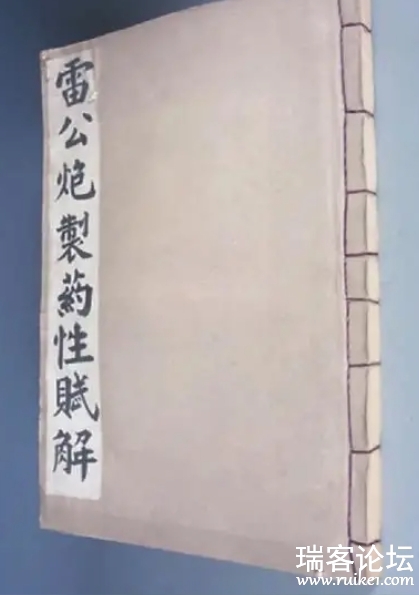 雷公炮製药性賦解
瑞客论坛
www.ruike1.com